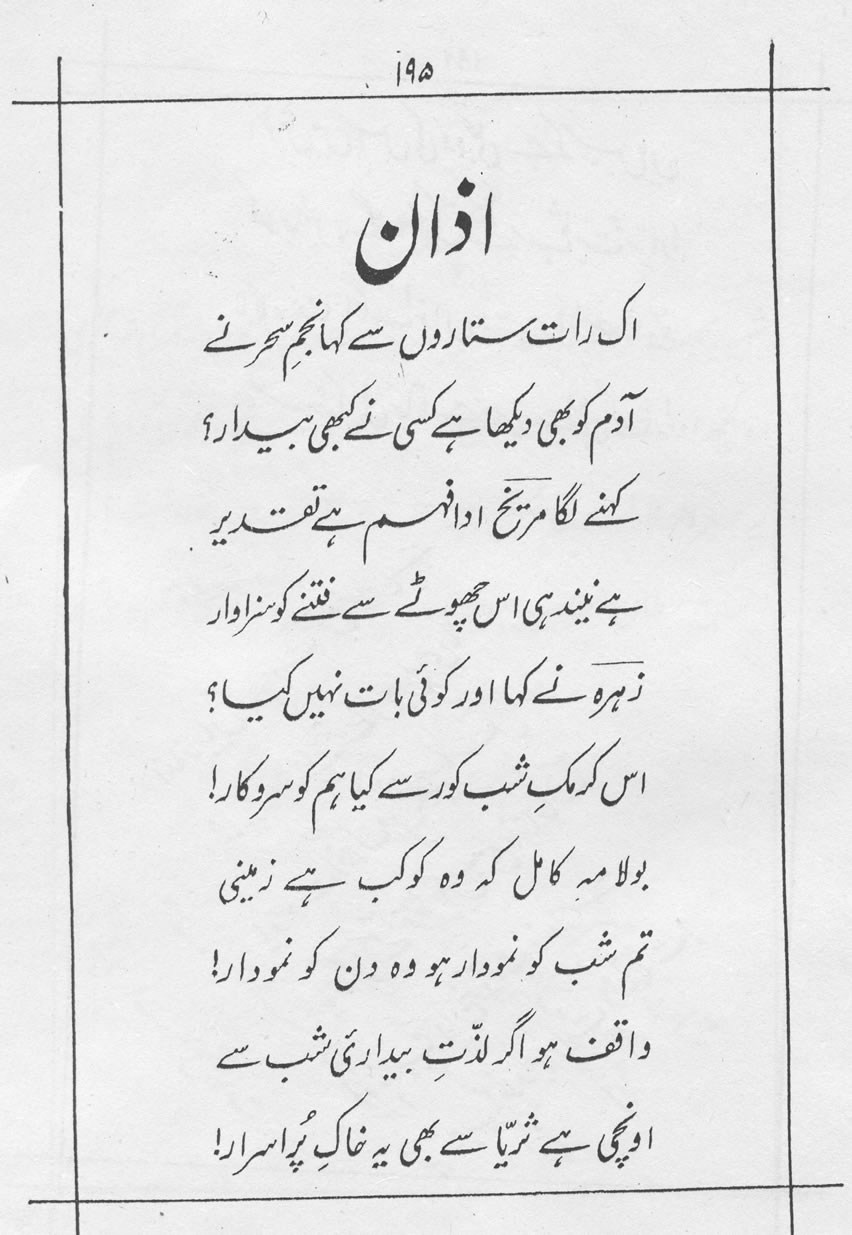 ۱۹۵
اذان
اک رات ستاروں سے کہا نجمِ سحر نے
آدم کو بھی دیکھا ہے کسی نے کبھی بیدار؟
کہنے لگا مریخ ادا فہم ہے تقدیر
ہے نیند ہی اس چھوٹے سے فتنے کو سزاوار
زہرہ نے کہا اور کوئی بات نہیں کیا؟
اس کرمکِ شب کور سے کیا ہم کو سروکار!
بولا مہِ کامل کہ وہ کوکب ہے زمینی
تم شب کو نمودار ہو وہ دن کو نمودار!
واقف ہو اگر لذّتِ بیداریٔ شب سے
اونچی ہے ثریّا سے بھی یہ خاکِ پُراسرار!